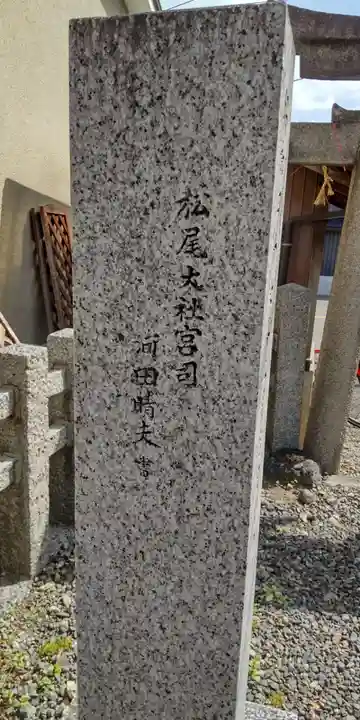 松尾大社宮司
河田晴夫 書